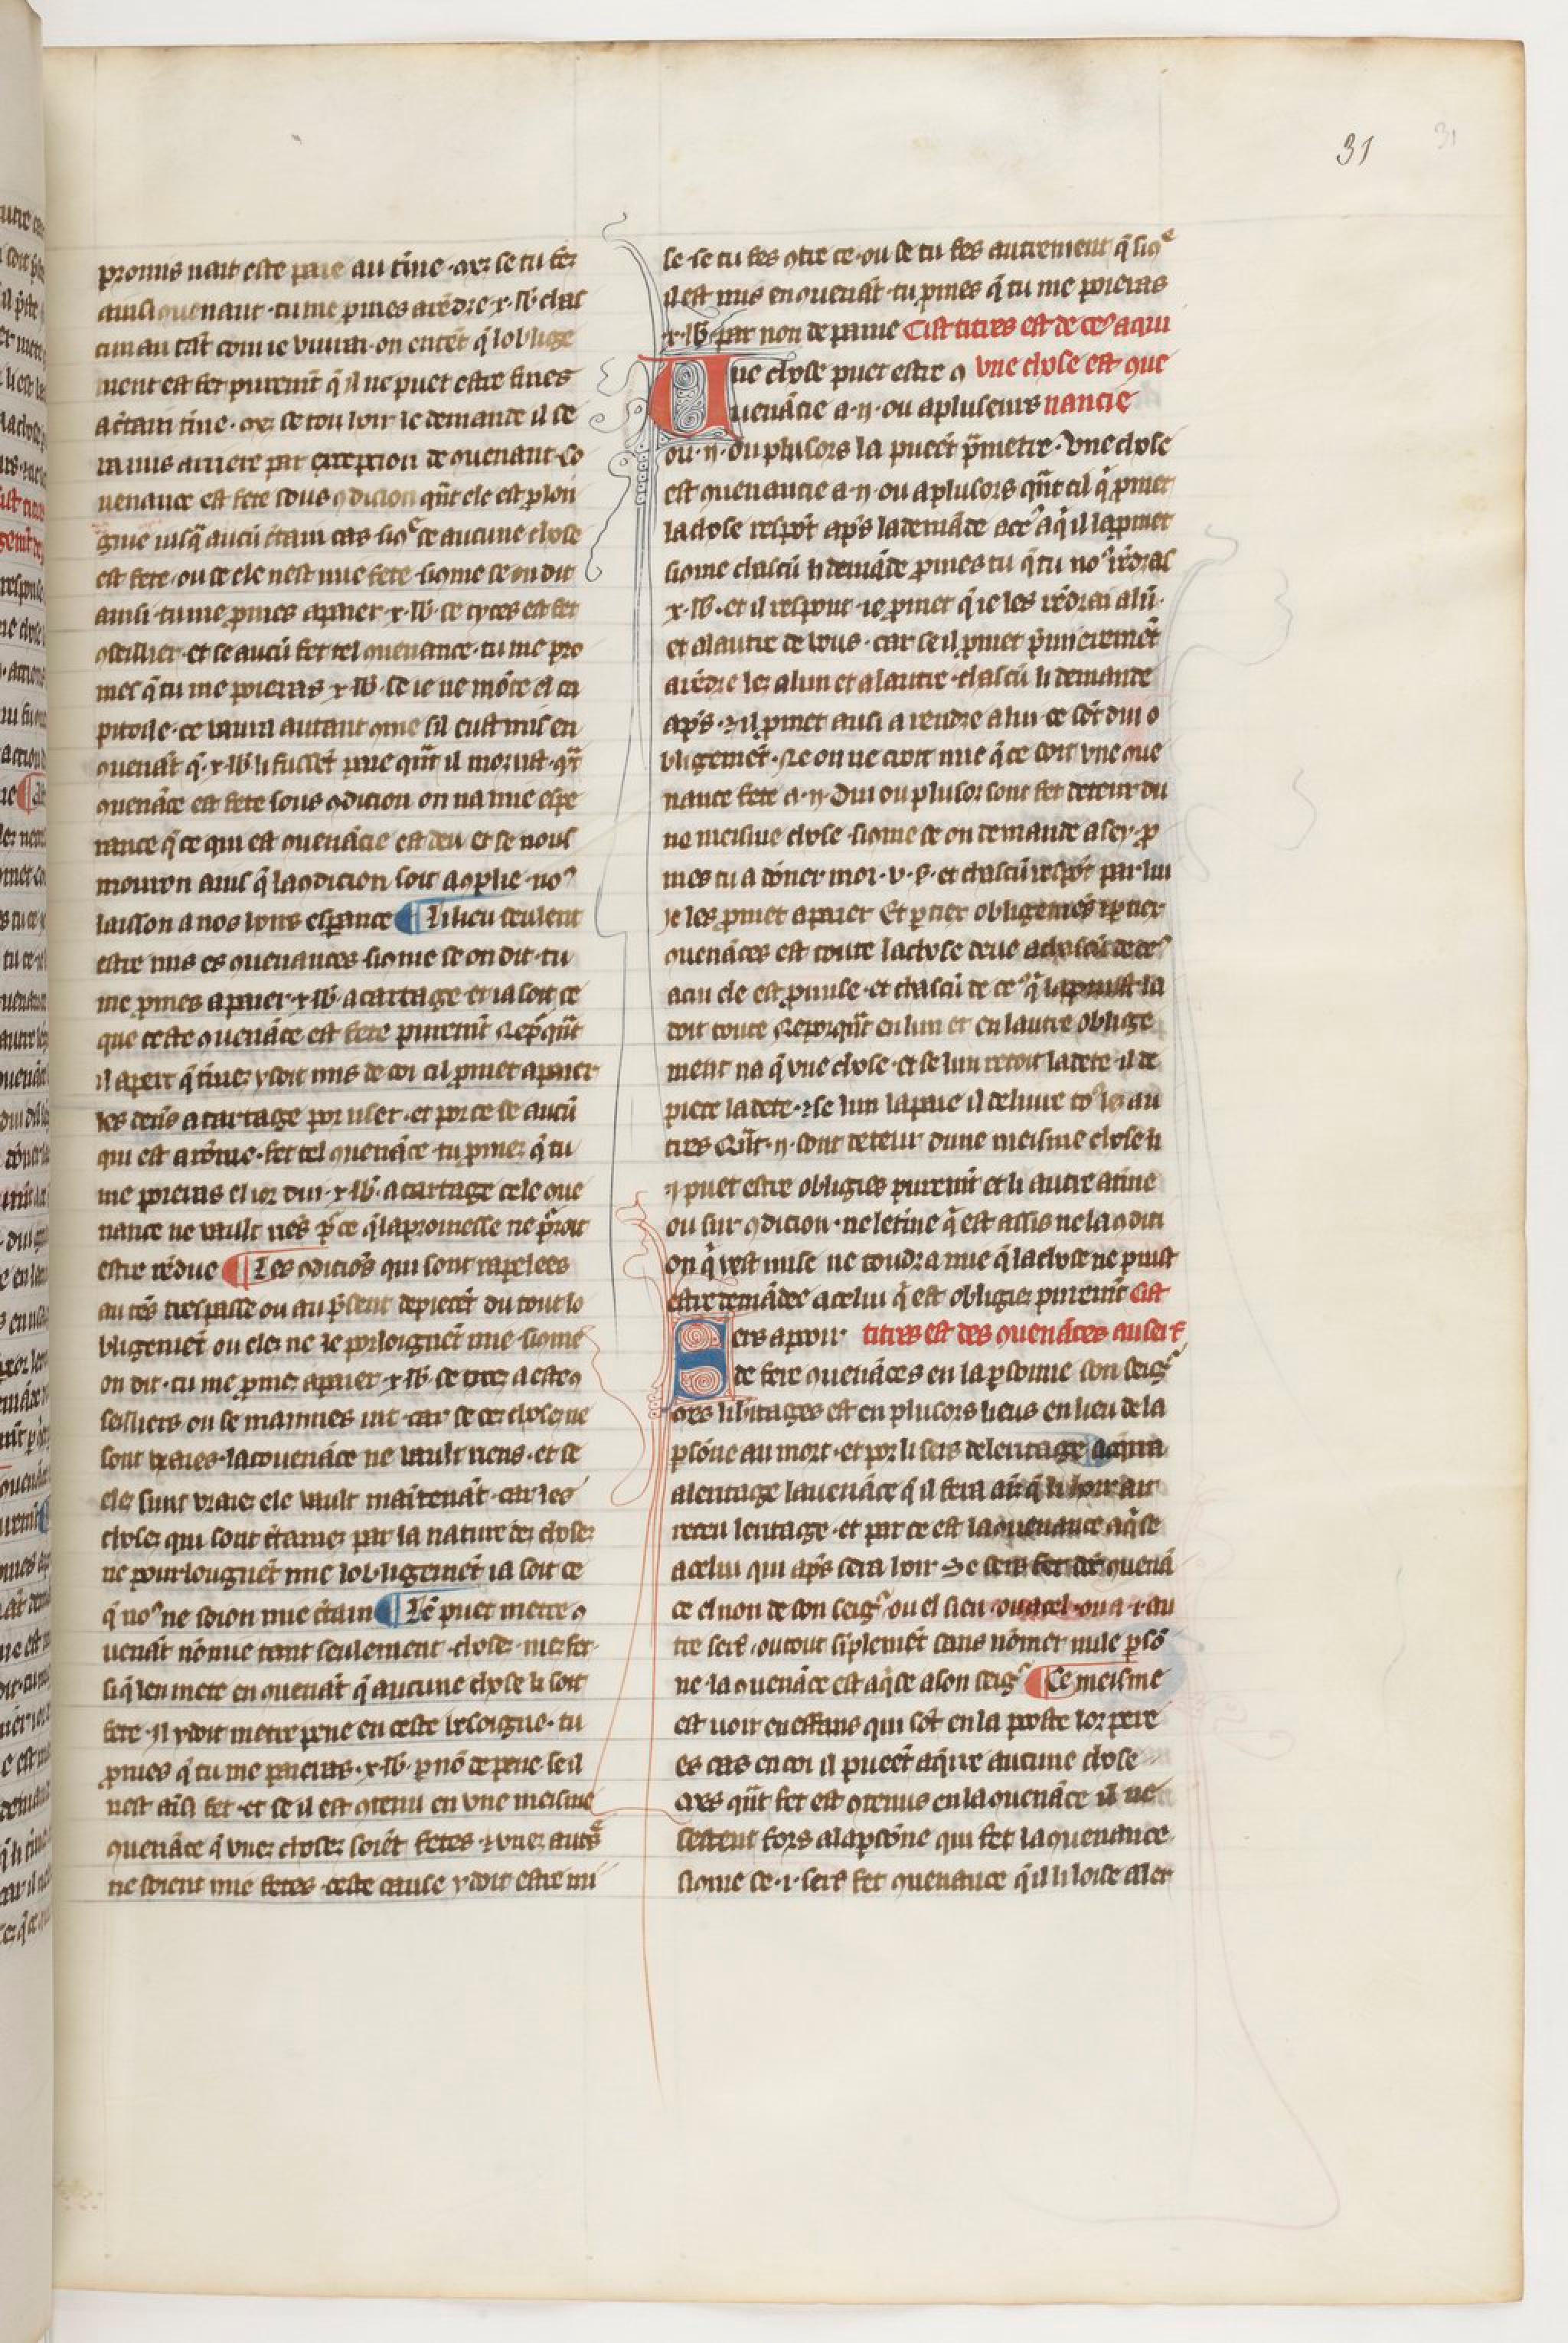 31
promis nait este paie au t̄me · mes se tu fez
ainsi ꝯuenant · tu me ꝓmes a rēdre · x · lb̄ chas
cun an tāt com ie viurai · on entēt q̄ lobliige
ment est fet puremt̄ q̄ il ne puet estre fines
a c̄tain t̄me · mes se ton loir le demande il se
ra mis arriere par exception de ꝯuenant · Co
uenance est fete sous ꝯdicion qn̄t ele est ꝓlon
gnie iusq̄ a aucū c̄tain cas · sicꝯ se aucune chose
est fete · ou se ele nest mie fete · sicome se on dit
ainsi · tu me ꝓmes a paier · x · lb̄ · se tyces est fet
ꝯseillier · et se aucū fet tel ꝯuenance · tu me pro
mes q̄ tu me poieras · x · lb̄ · se ie ne mōte el ca
pitoile · ce vaura autant ꝯme sil eust mis en
ꝯuenāt q̄ · x · lb̄ li fussēt paie qn̄t il morust · qn̄t
ꝯuenāce est fete sous ꝯdicion on na mie espe
rance q̄ ce qui est ꝯuenācie est deu et se nous
mouron ains q̄ la ꝯdicion soit aꝯplie · noꝰ
laisson a nos hoirs esꝑance ¶ Li lieu seulent
estre mis es ꝯuenances · sicome se on dit · tu
me ꝓmes a paier · x · lb̄ · a cartage · et ia soit ce
que ceste ꝯuenāce est fete puremt̄ neporqn̄t
il apert q̄ t̄mez y soit mis de coi cil ꝓmet a paier
les deniers a cartage por user · et por ce se aucū
qui est a rōme · fet tel ꝯuenāce · tu ꝓmez q̄ tu
me poieras el ior dui · x · lb̄ · a cartage cele ꝯue
nance ne vault riēs · por ce q̄ la promesse ne porroit
estre rēdue ¶ Les ꝯdiciōs qui sont rapelees
au tēs trespasse ou au p̄sent depiecēt du tout lo
bligemēt ou eles ne le porloignēt mie · sicome
on dit · tu me ꝓmez a paier · x · lb̄ · se titez a este ꝯ
seilliers ou se maiuies uit · car se ces choses ne
sont vraies · la couenāce ne vault riens · et se
eles sunt vraies ele vault maītenāt · car les
choses qui sont c̄taines par la nature des choses
ne pourlongnēt mie lobligemēt ia soit ce
q̄ noꝰ ne soion mie c̄tain ¶ Lē puet metre ꝯ
uenāt nōmie tant seulement · choses · mes fet
si q̄ len mete en ꝯuenāt q̄ aucune chose li soit
fete · Il y doit metre pene en ceste besoigne · tu
ꝓmes q̄ tu me paieras · x · lb̄ · ꝑ nō de pene · se il
nest aīsi fet · et se il est ꝯtenu en vne meisme
ꝯuenāce q̄ vnes choses soiēt fetes · ⁊ vnes autrēs
ne soient mie fetes · ceste cause y doit estre mi
se · se tu fes ꝯtre ce · ou se tu fes autrement q̄ sicꝯ
il est mis en ꝯuenāt · tu ꝓmes q̄ tu me poieras
· x · lb̄ · par non de paine Cist titres est de ceꝰ a qui
Vne chose puet estre ꝯ vne chose est ꝯue
uenācie a · ıı · ou a pluseurs nancie
ou · ıı · ou plusors la pueēt ꝓmetre · Vne chose
est ꝯuenancie a · ıı · ou a plusors qn̄t cil q̄ ꝓmet
la chose respōt apˢ la demāde a ceꝰ a q̄ il la ꝓmet
sicome chascū li demāde ꝓmes tu q̄ tu noꝰ rēdras
x · lb̄ · et il respont · ie ꝓmet q̄ ie les rēdrai a lū ·
et a lautre de vous · car se il ꝓmet p̄mieremēt
a rēdre les a lun et a lautre · chascū li demande
apˢ · ⁊ il ꝓmet ausi a rendre a lui · ce sōt dui o
bligemēt · Ne on ne croit mie q̄ ce soit vne ꝯue
nance fete a · ıı · Dui ou plusor sont fet deteur du
ne meisme chose · sicome se on demande a sez · ꝓ
mes tu a dōner moi · v · s · et chascū respōt par lui
ie les ꝓmet a paier Et ꝑ tiex obligemēs ⁊ ꝑ tiex
ꝯuenāces est toute la chose deue a chascū de ceꝰ
a cui ele est ꝓmise · et chascū de ceꝰ q̄ la ꝓmist la
doit toute Neporqn̄t en lun et en lautre oblige
ment na q̄ vne chose · et se lun recoit la dete · il de
piece la dete · ⁊ se lun la paie il deliure toꝰ les au
tres Qn̄t · ıı · sont deteur dune meisme chose li
· ı · puet estre obligies puremt̄ et li autre a t̄me
ou sur ꝯdicion · ne le t̄me q̄ est assis ne la ꝯditi
on q̄ y est mise ne toudra mie q̄ la chose ne puist
estre demādee a celui q̄ est obligiez puremt̄ Cist
Sers a pooir titres est des ꝯuenāces au serf
de fere ꝯuenāces en la ꝑsonne son seigʳ
mes liritages est en plusors lieus en lieu de la
ꝑsōne au mort · et por li sers de leritage aquira
a leritage la ꝯuenāce q̄ il fera ains q̄ li hoir ait
receu leritage · et par ce est la ꝯuenance aq̄se
a celui qui apˢ sera hoir · Se sers fet dōt ꝯuenā
ce el non de son seigʳ ou el sien · ou a cel · ou a · ı · au
tre serf · ou tout sīplemēt sans nōmer nule ꝑsō
ne · la ꝯuenāce est aq̄se a son seigʳ ¶ Ce meisme
est uoir en effans qui sōt en la poste lor pere
es cas en coi il pueēt aq̄rre aucune chose
mes qn̄t fet est ꝯtenus en la ꝯuenāce il ne
sestent fors a la ꝑsōne qui fet la ꝯuenance
sicome se · ı · sers fet ꝯuenance q̄ il li loise aler